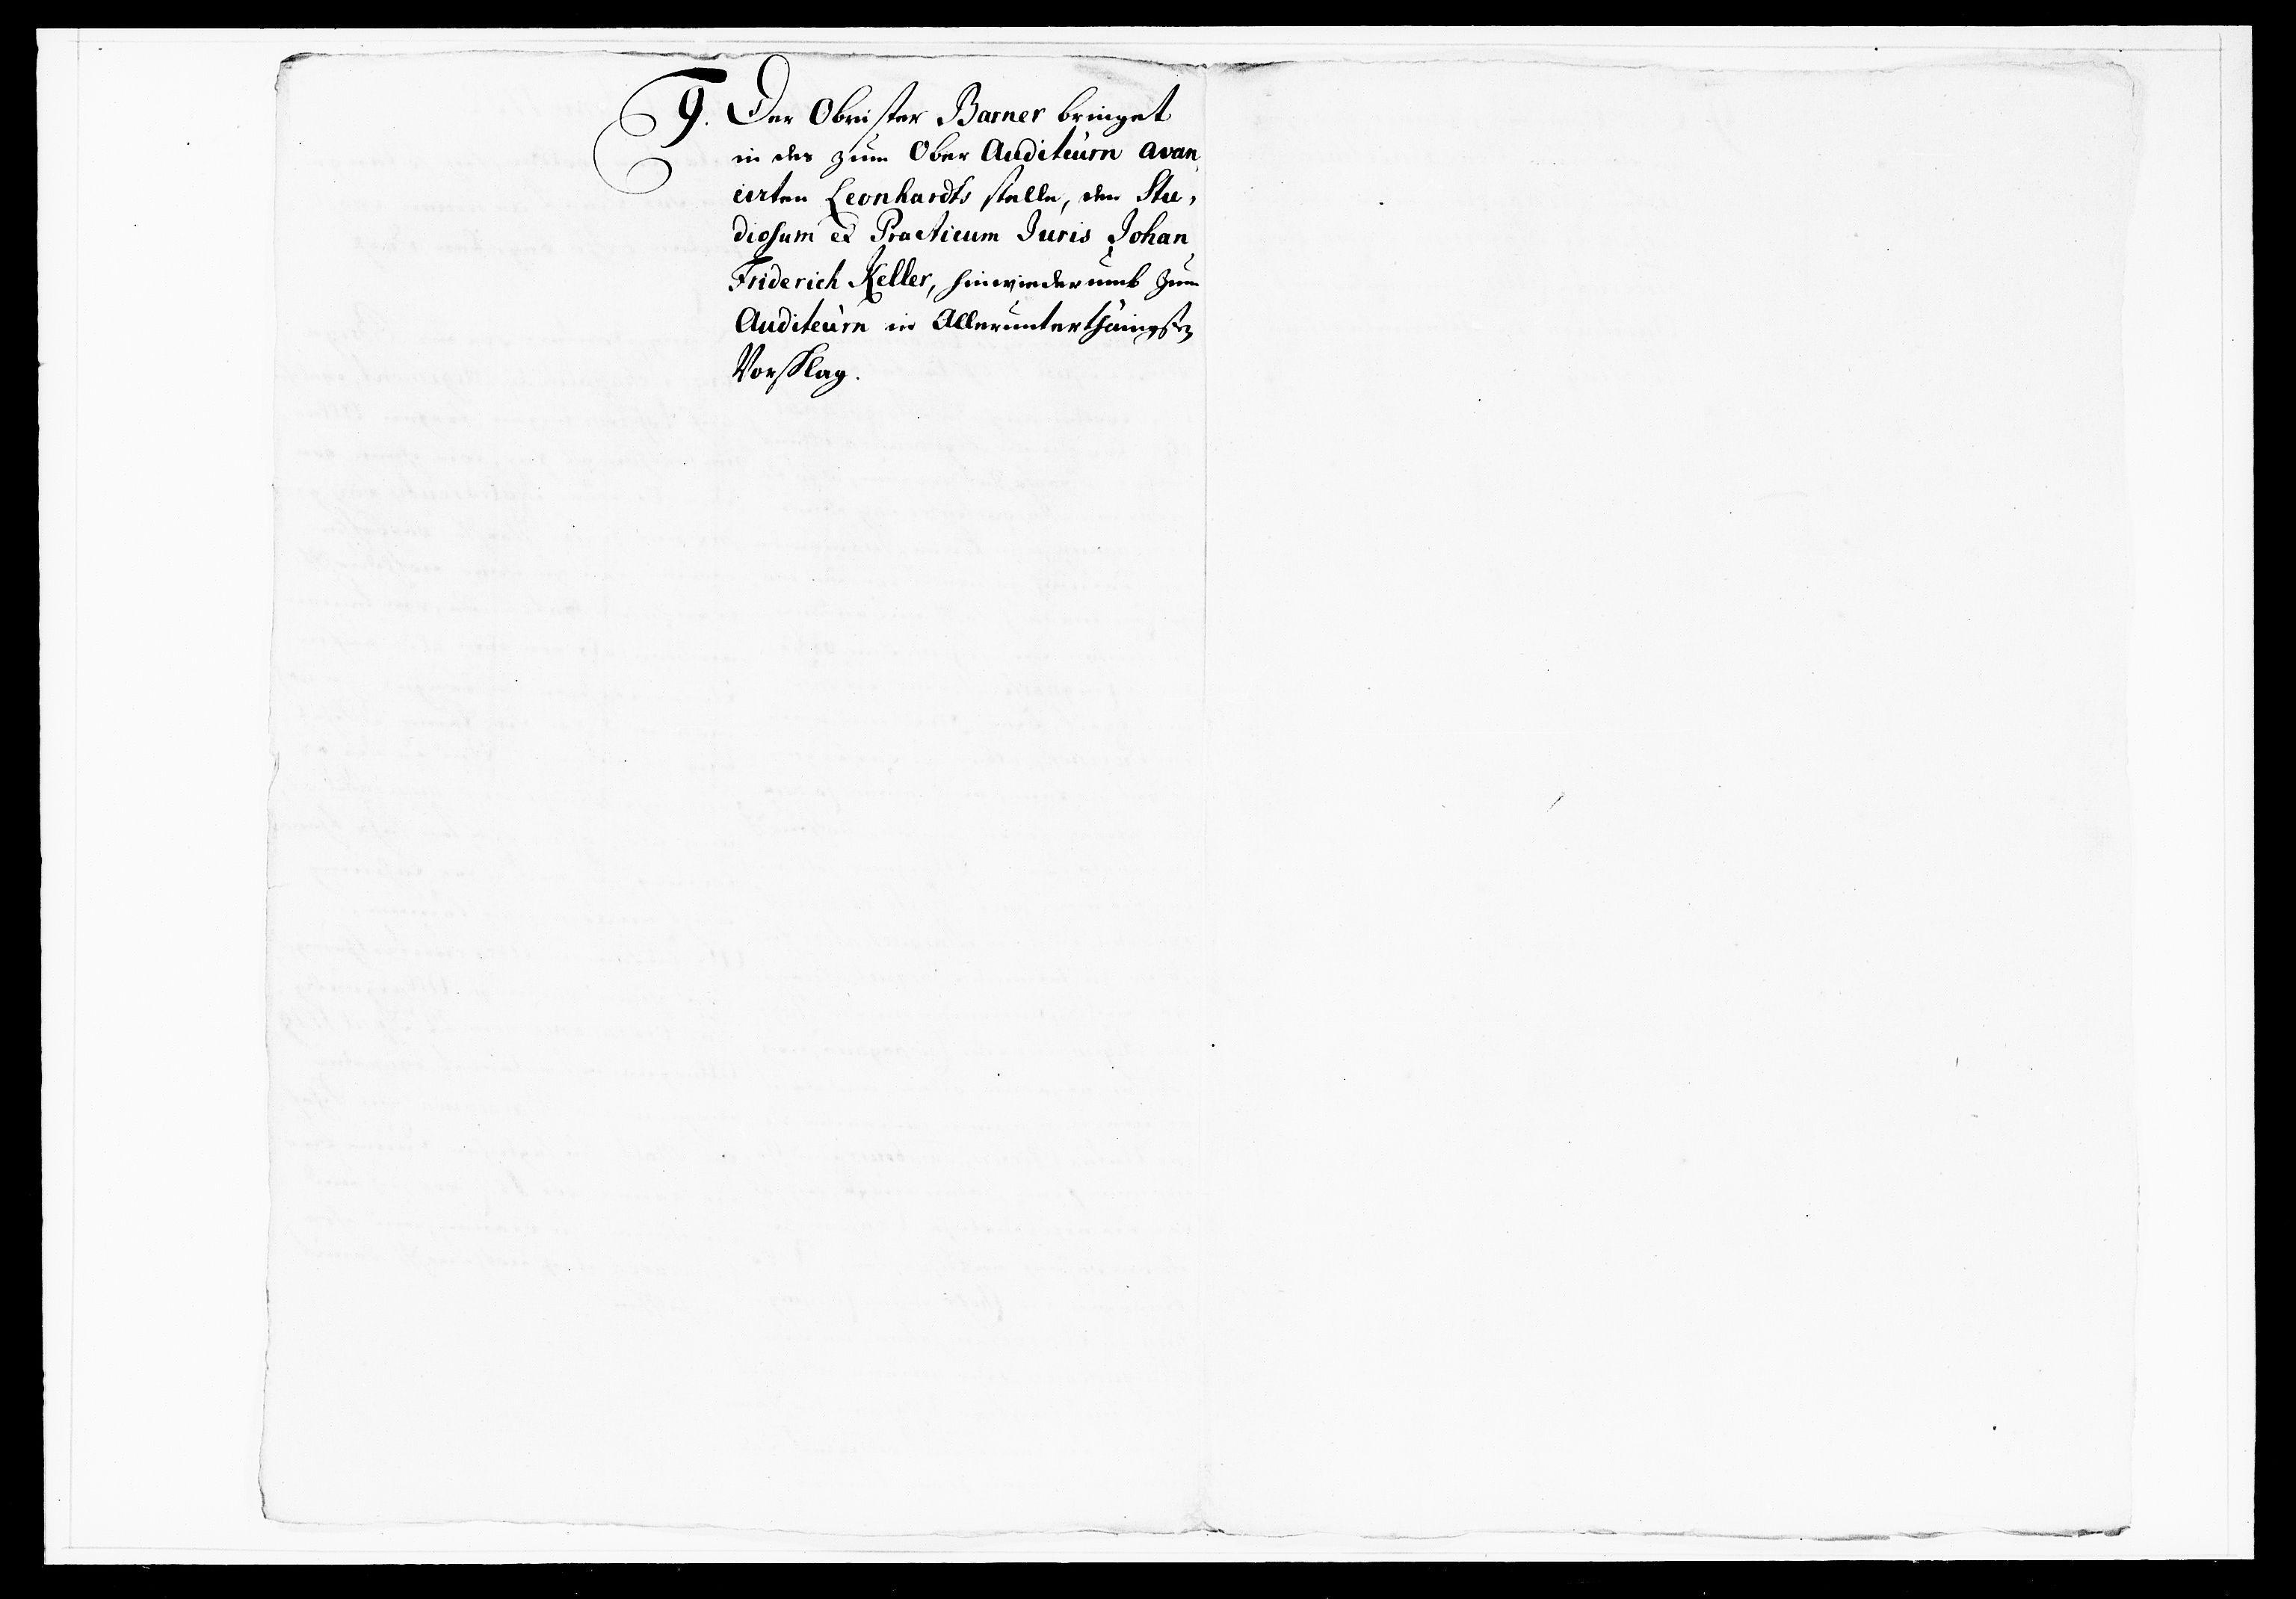 9. Der Obrister Barner bringet
in des zum Ober Auditeurn avan,
cirten Leonhardts stelle, den Stu,
diosum et Practicum Juris Johan
Friderich Keller, hinwiederumb zum
Auditeurn in Allerunterthänigsten
Vorschlag.